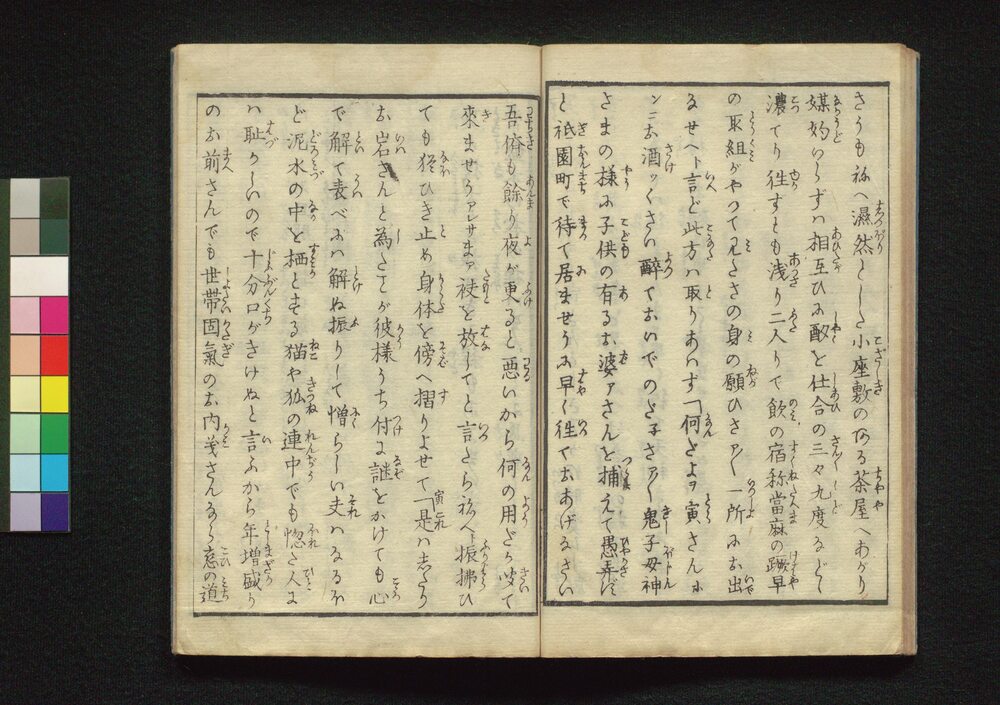 さうも祢へ濕然とした小座敷のある茶屋へあがり
媒妁いらずハ相互ひに酌を仕合の三々九度などし
濃てり往すとも浅り二人りで飲の宿称當麻の蹶早
の取組がやつて見たさの身の願ひさア〳〵一所にお出
なせへト言ど此方ハ取りあハず「何だよヲ寅さんに
ンニお酒ッくさい醉ておいでのだ子さア〳〵鬼子母神
さまの様に子供の有るお婆アさんを捕えて愚弄だ
と祇園町で待て居ませうに早く往てお上げなさい
吾儕も餘り夜が更ると悪いから何の用だか聞て
來ませうアレサまア袂を放してと言たら祢へト振拂ひ
ても猶ひき止め身体を傍へ摺りよせて「是ハしたり
お岩さんと為たことが彼様うち付に謎をかけても心
で解て表べにハ解ぬ振りして憎らしい夫ハなるほ
ど泥水の中を栖とする猫や狐の連中でも惚た人に
ハ耻かしいので十分口がきけぬと言ふから年増盛り
のお前さんでも世帯固氣のお内義さんなら恋の道